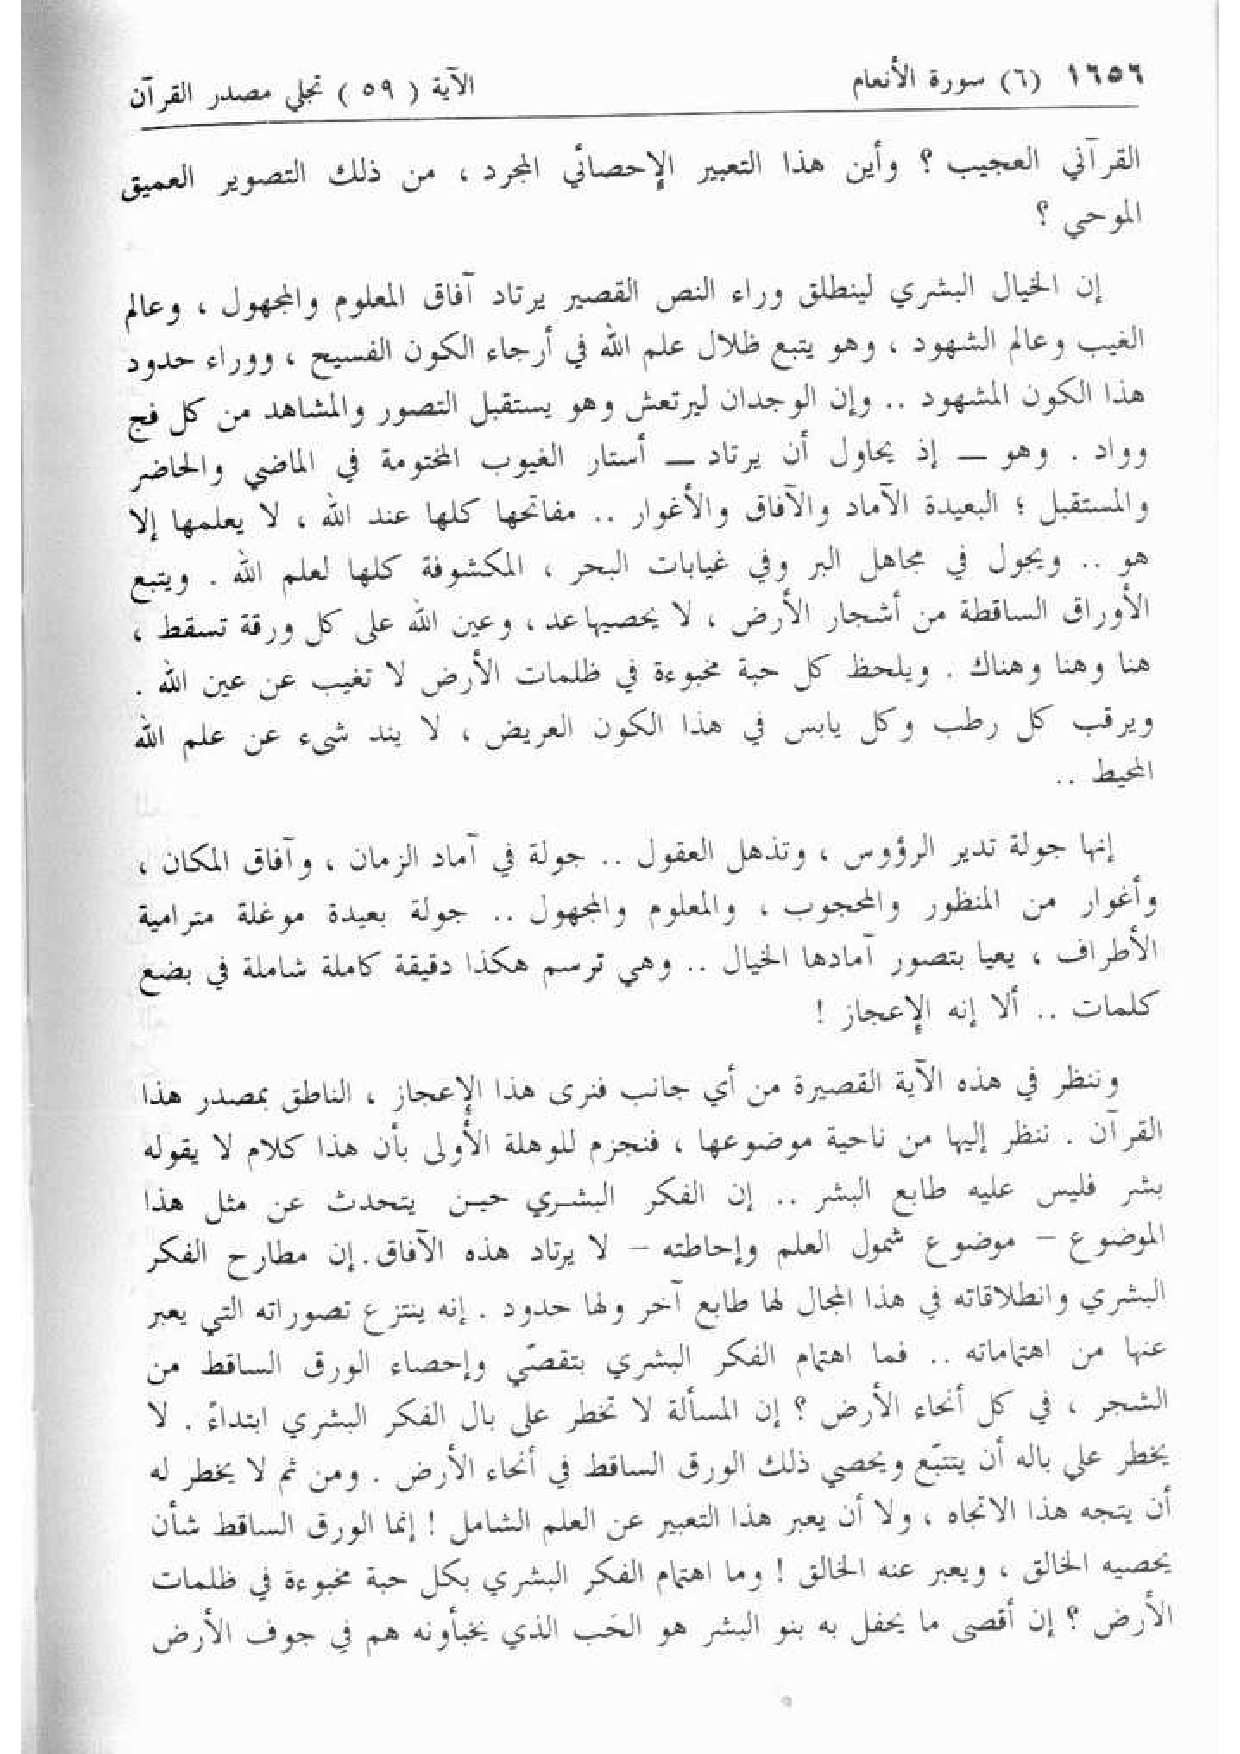 ١٦٥٦ (٦) سورة الأنعام الآية ( ٥٩ ) تجلي مصدر القرآن
القرآني العجيب ؟ وأين هذا التعبير الإحصائي المجرد ، من ذلك التصوير العميق
الموحي ؟
إن الخيال البشري لينطلق وراء النص القصير يرتاد آفاق المعلوم والمجهول ، وعالم
الغيب وعالم الشهود ، وهو يتبع ظلال علم الله في أرجاء الكون الفسيح ، ووراء حدود
هذا الكون المشهود .. وإن الوجدان ليرتعش وهو يستقبل التصور والمشاهد من كل فج
وواد . وهو – إذ يحاول أن يرتاد – أستار الغيوب المختومة في الماضي والحاضر
والمستقبل ؛ البعيدة الآماد والآفاق والأغوار .. مفاتحها كلها عند الله ، لا يعلمها إلا
هو .. ويجول في مجاهل البر وفي غيابات البحر ، المكشوفة كلها لعلم الله . ويتبع
الأوراق الساقطة من أشجار الأرض ، لا يحصيها عد ، وعين الله على كل ورقة تسقط ،
هنا وهنا وهناك . ويلحظ كل حبة مخبوءة في ظلمات الأرض لا تغيب عن عين الله .
ويرقب كل رطب وكل يابس في هذا الكون العريض ، لا يند شىء عن علم الله
المحيط ..
إنها جولة تدير الرؤوس ، وتذهل العقول .. جولة في آماد الزمان ، وآفاق المكان ،
وأغوار من المنظور والمحجوب ، والمعلوم والمجهول .. جولة بعيدة موغلة مترامية
الأطراف ، يعيا بتصور آمادها الخيال .. وهي ترسم هكذا دقيقة كاملة شاملة في بضع
كلمات .. ألا إنه الإعجاز !
وننظر في هذه الآية القصيرة من أي جانب فنرى هذا الإعجاز ، الناطق بمصدر هذا
القرآن . ننظر إليها من ناحية موضوعها ، فنجزم للوهلة الأولى بأن هذا كلام لا يقوله
بشر فليس عليه طابع البشر .. إن الفكر البشري حين يتحدث عن مثل هذا
الموضوع – موضوع شمول العلم وإحاطته – لا يرتاد هذه الآفاق. إن مطارح الفكر
البشري وانطلاقاته في هذا المجال لها طابع آخر ولها حدود . إنه ينتزع تصوراته التي يعبر
عنها من اهتماماته .. فما اهتمام الفكر البشري بتقصّي وإحصاء الورق الساقط من
الشجر ، في كل أنحاء الأرض ؟ إن المسألة لا تخطر على بال الفكر البشري ابتداءً . لا
يخطر على باله أن يتتبّع ويحصي ذلك الورق الساقط في أنحاء الأرض . ومن ثم لا يخطر له
أن يتجه هذا الاتجاه ، ولا أن يعبر هذا التعبير عن العلم الشامل ! إنما الورق الساقط شأن
يحصيه الخالق ، ويعبر عنه الخالق ! وما اهتمام الفكر البشري بكل حبة مخبوءة في ظلمات
الأرض ؟ إن أقصى ما يحفل به بنو البشر هو الحَب الذي يخبأونه هم في جوف الأرض